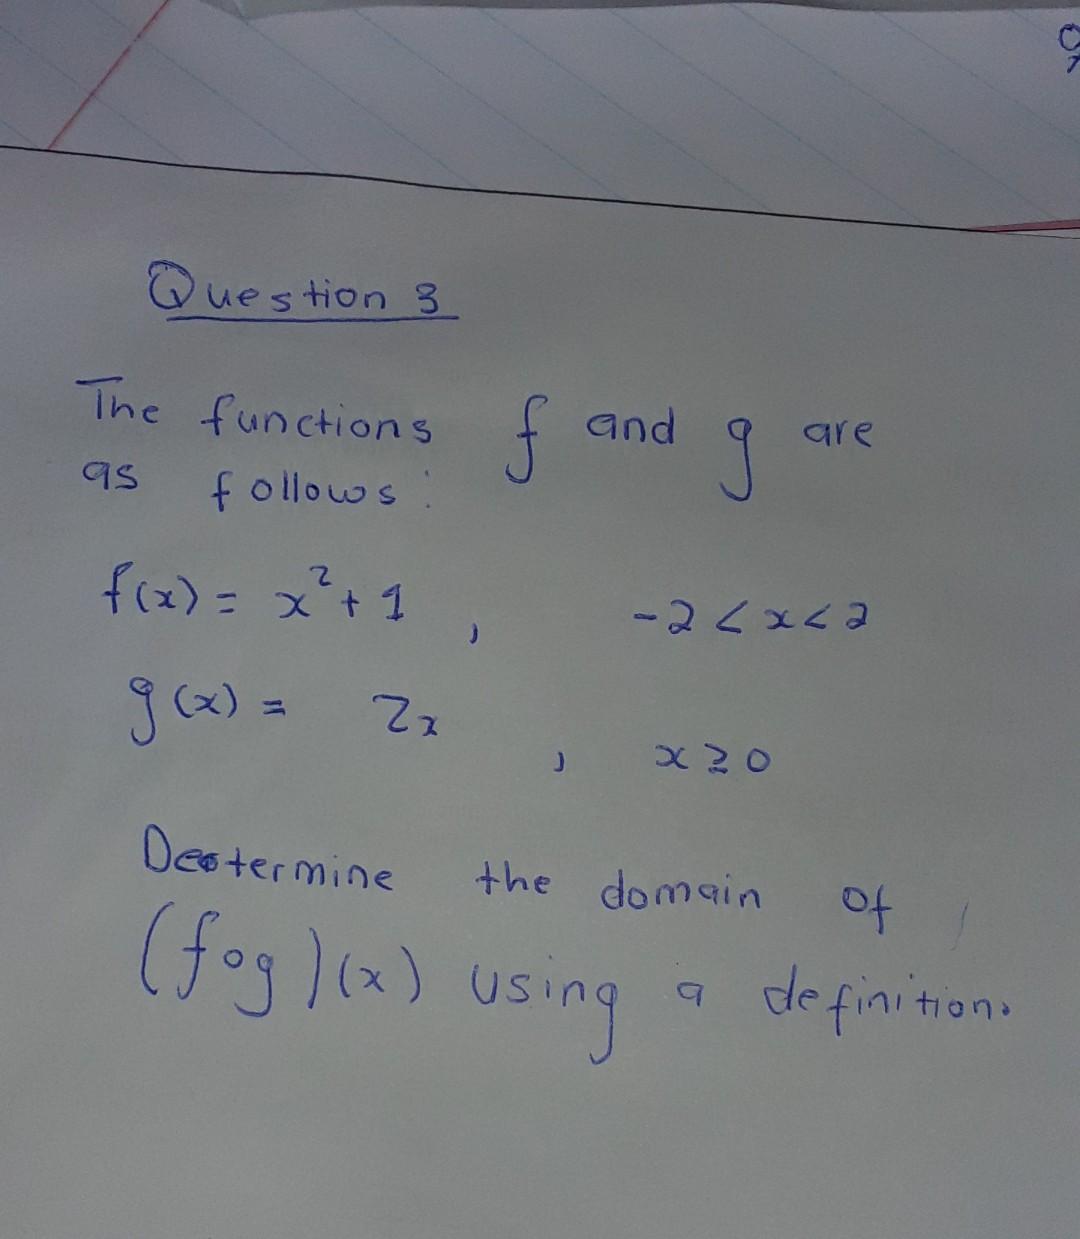 Question 3
The functions f and g are
as follows:
f(x) = x² + 1 , -2 < x < 2
g(x) = 2x , x ≥ 0
Determine the domain of
(fog)(x) using a definition.